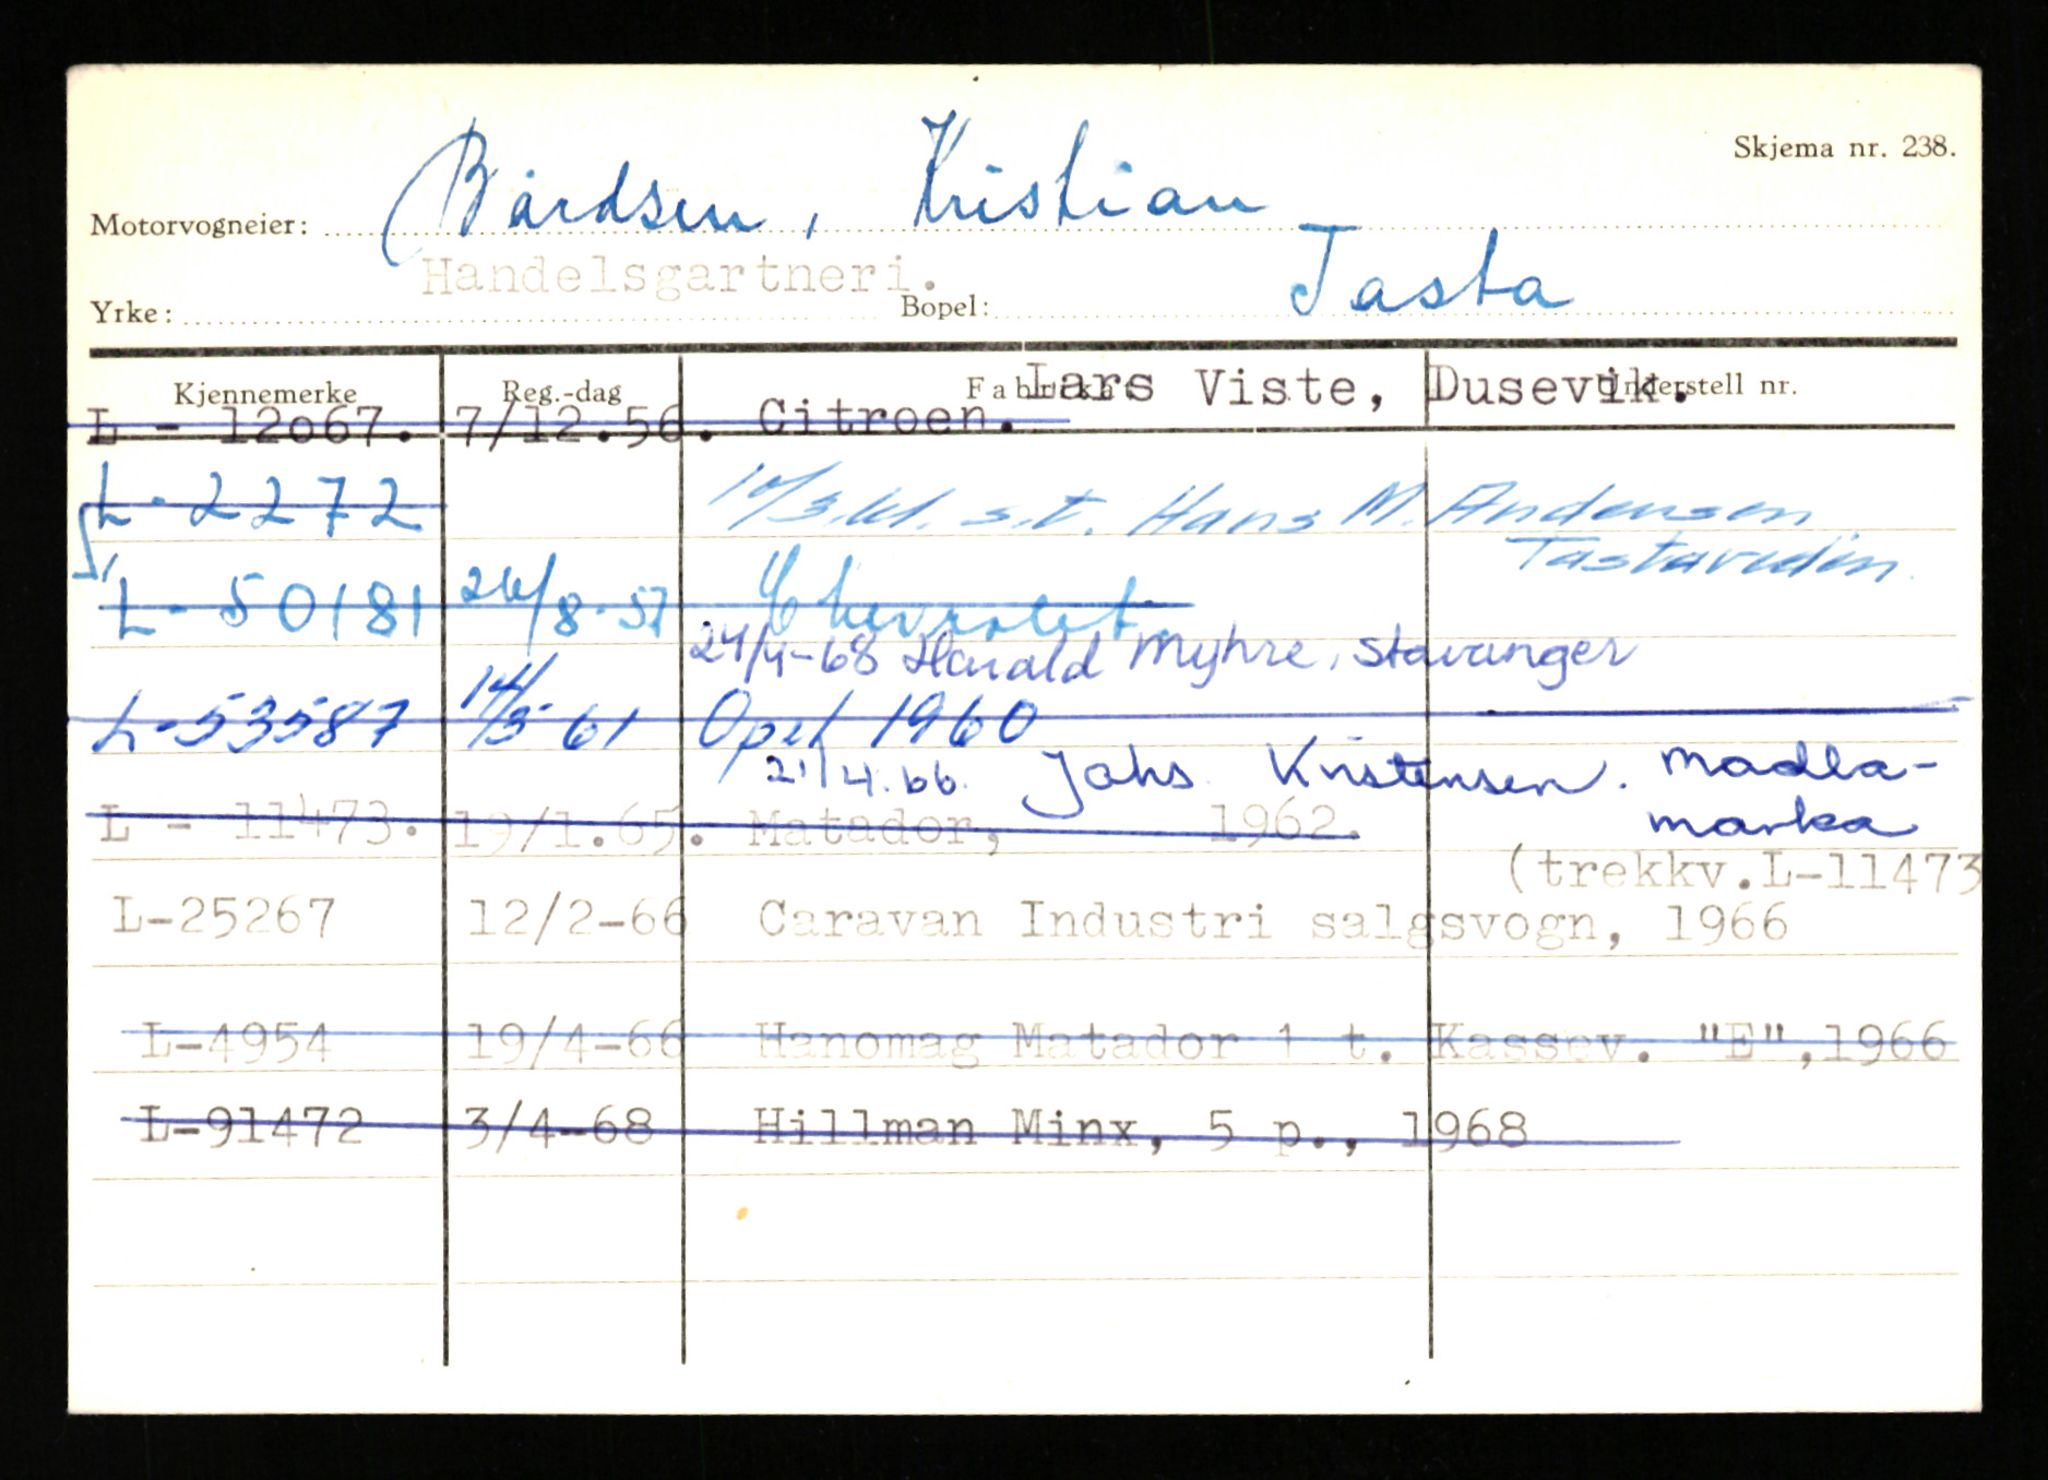 Skjema nr. 238.
Motorvogneier: Bårdsen, Kristian
Handelsgartneri.
Yrke: Bopel: Tasta
Kjennemerke Reg.-dag Lars Viste, Dusevik. Understell nr.
L - 12o67. 7/12.56. Citroen.
L - 2272 14/3.61. s.t. Hans M. Andensen
Tastaveden
L - 50181 26/8-57 Chevrolet
24/4-68 Harald Myhre, Stavanger
L-53587 14/5 61 Opel 1960
21/4.66. Johs Kristensen. Madla-
marka
L - 11473. 19/1.65. Matador, 1962.
(trekkv.L-11473
L-25267 12/2-66 Caravan Industri salgsvogn, 1966
L-4954 19/4-66 Hanomag Matador 1 t. Kassev. "E",1966
L-91472 3/4-68 Hillman Minx, 5 p., 1968